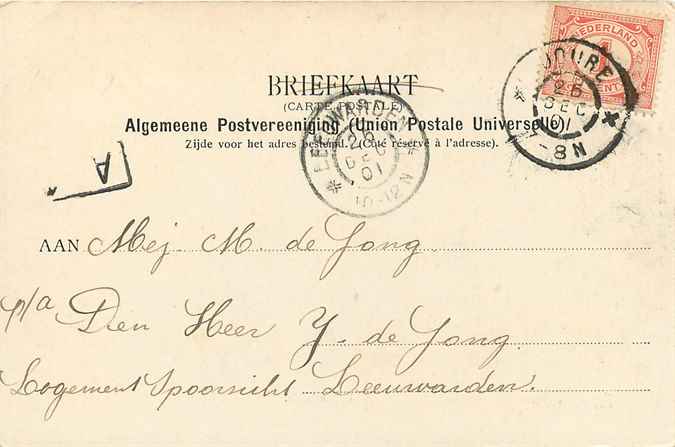 NEDERLAND
1
CENT
JOURE
26
DEC
01
7-8N
BRIEFKAART
(CARTE POSTALE)
Algemeene Postvereeniging (Union Postale Universelle)
Zijde voor het adres bestemd. (Côté réservé à l'adresse).
LEEUWARDEN
26
DEC
01
10-12N
A
AAN Mej. M. de Jong.
p/a Den Heer Y. de Jong.
Logement Spoorzicht Leeuwarden.